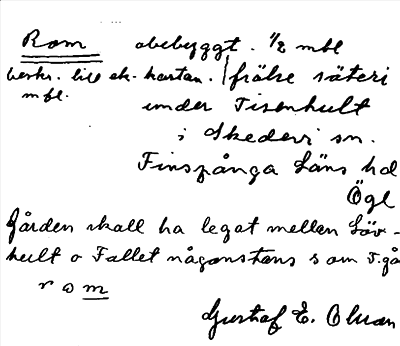 Rom obebyggt. 1/2 mbl
beskr. till ek. kartan. frälse säteri
mbl. under Tisenhult
i Skedevi sn.
Finspånga Läns hd
Ögl
Gården skall ha legat mellan Löv-
hult o Fallet någonstans som T.gå
rom
Gustaf E. Olson